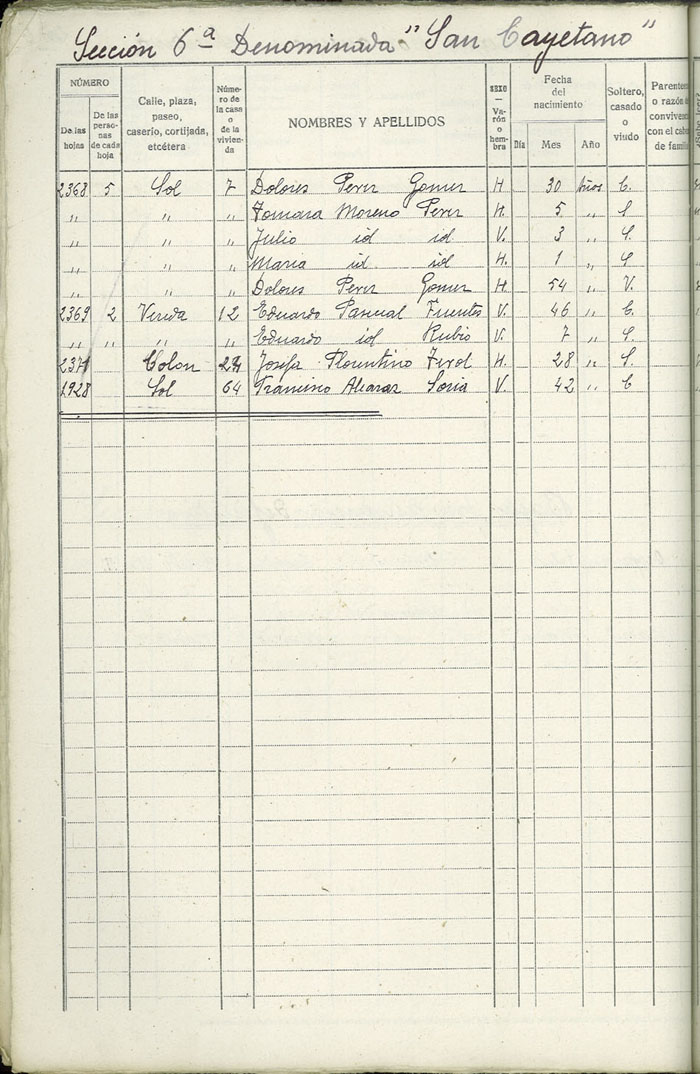 Sección 6ª Denominada "San Cayetano"
NÚMERO
De las hojas
De las personas de cada hoja
Calle, plaza, paseo, caserío, cortijada, etcétera
Número de la casa o de la vivienda
NOMBRES Y APELLIDOS
SEXO — Varón o hembra
Fecha del nacimiento
Día Mes Año
Soltero, casado o viudo
Parentesco o razón de convivencia con el cabeza de familia
2368 5 Sol 7 Dolores Perez Gomez H. 30 Años C.
" " " Tomasa Moreno Perez H. 5 " S
" " " Julio id id V. 3 " S.
" " " Maria id id H. 1 " S
" " " Dolores Perez Gomez H. 54 " V.
2369 2 Vereda 12 Eduardo Pascual Fuentes V. 46 " C.
" " " " Eduardo id Rubio V. 7 " S.
2371 Colon 24 Josefa Florentino H. 28 " S.
1928 Sol 64 Alcaraz Soria V. 42 " C